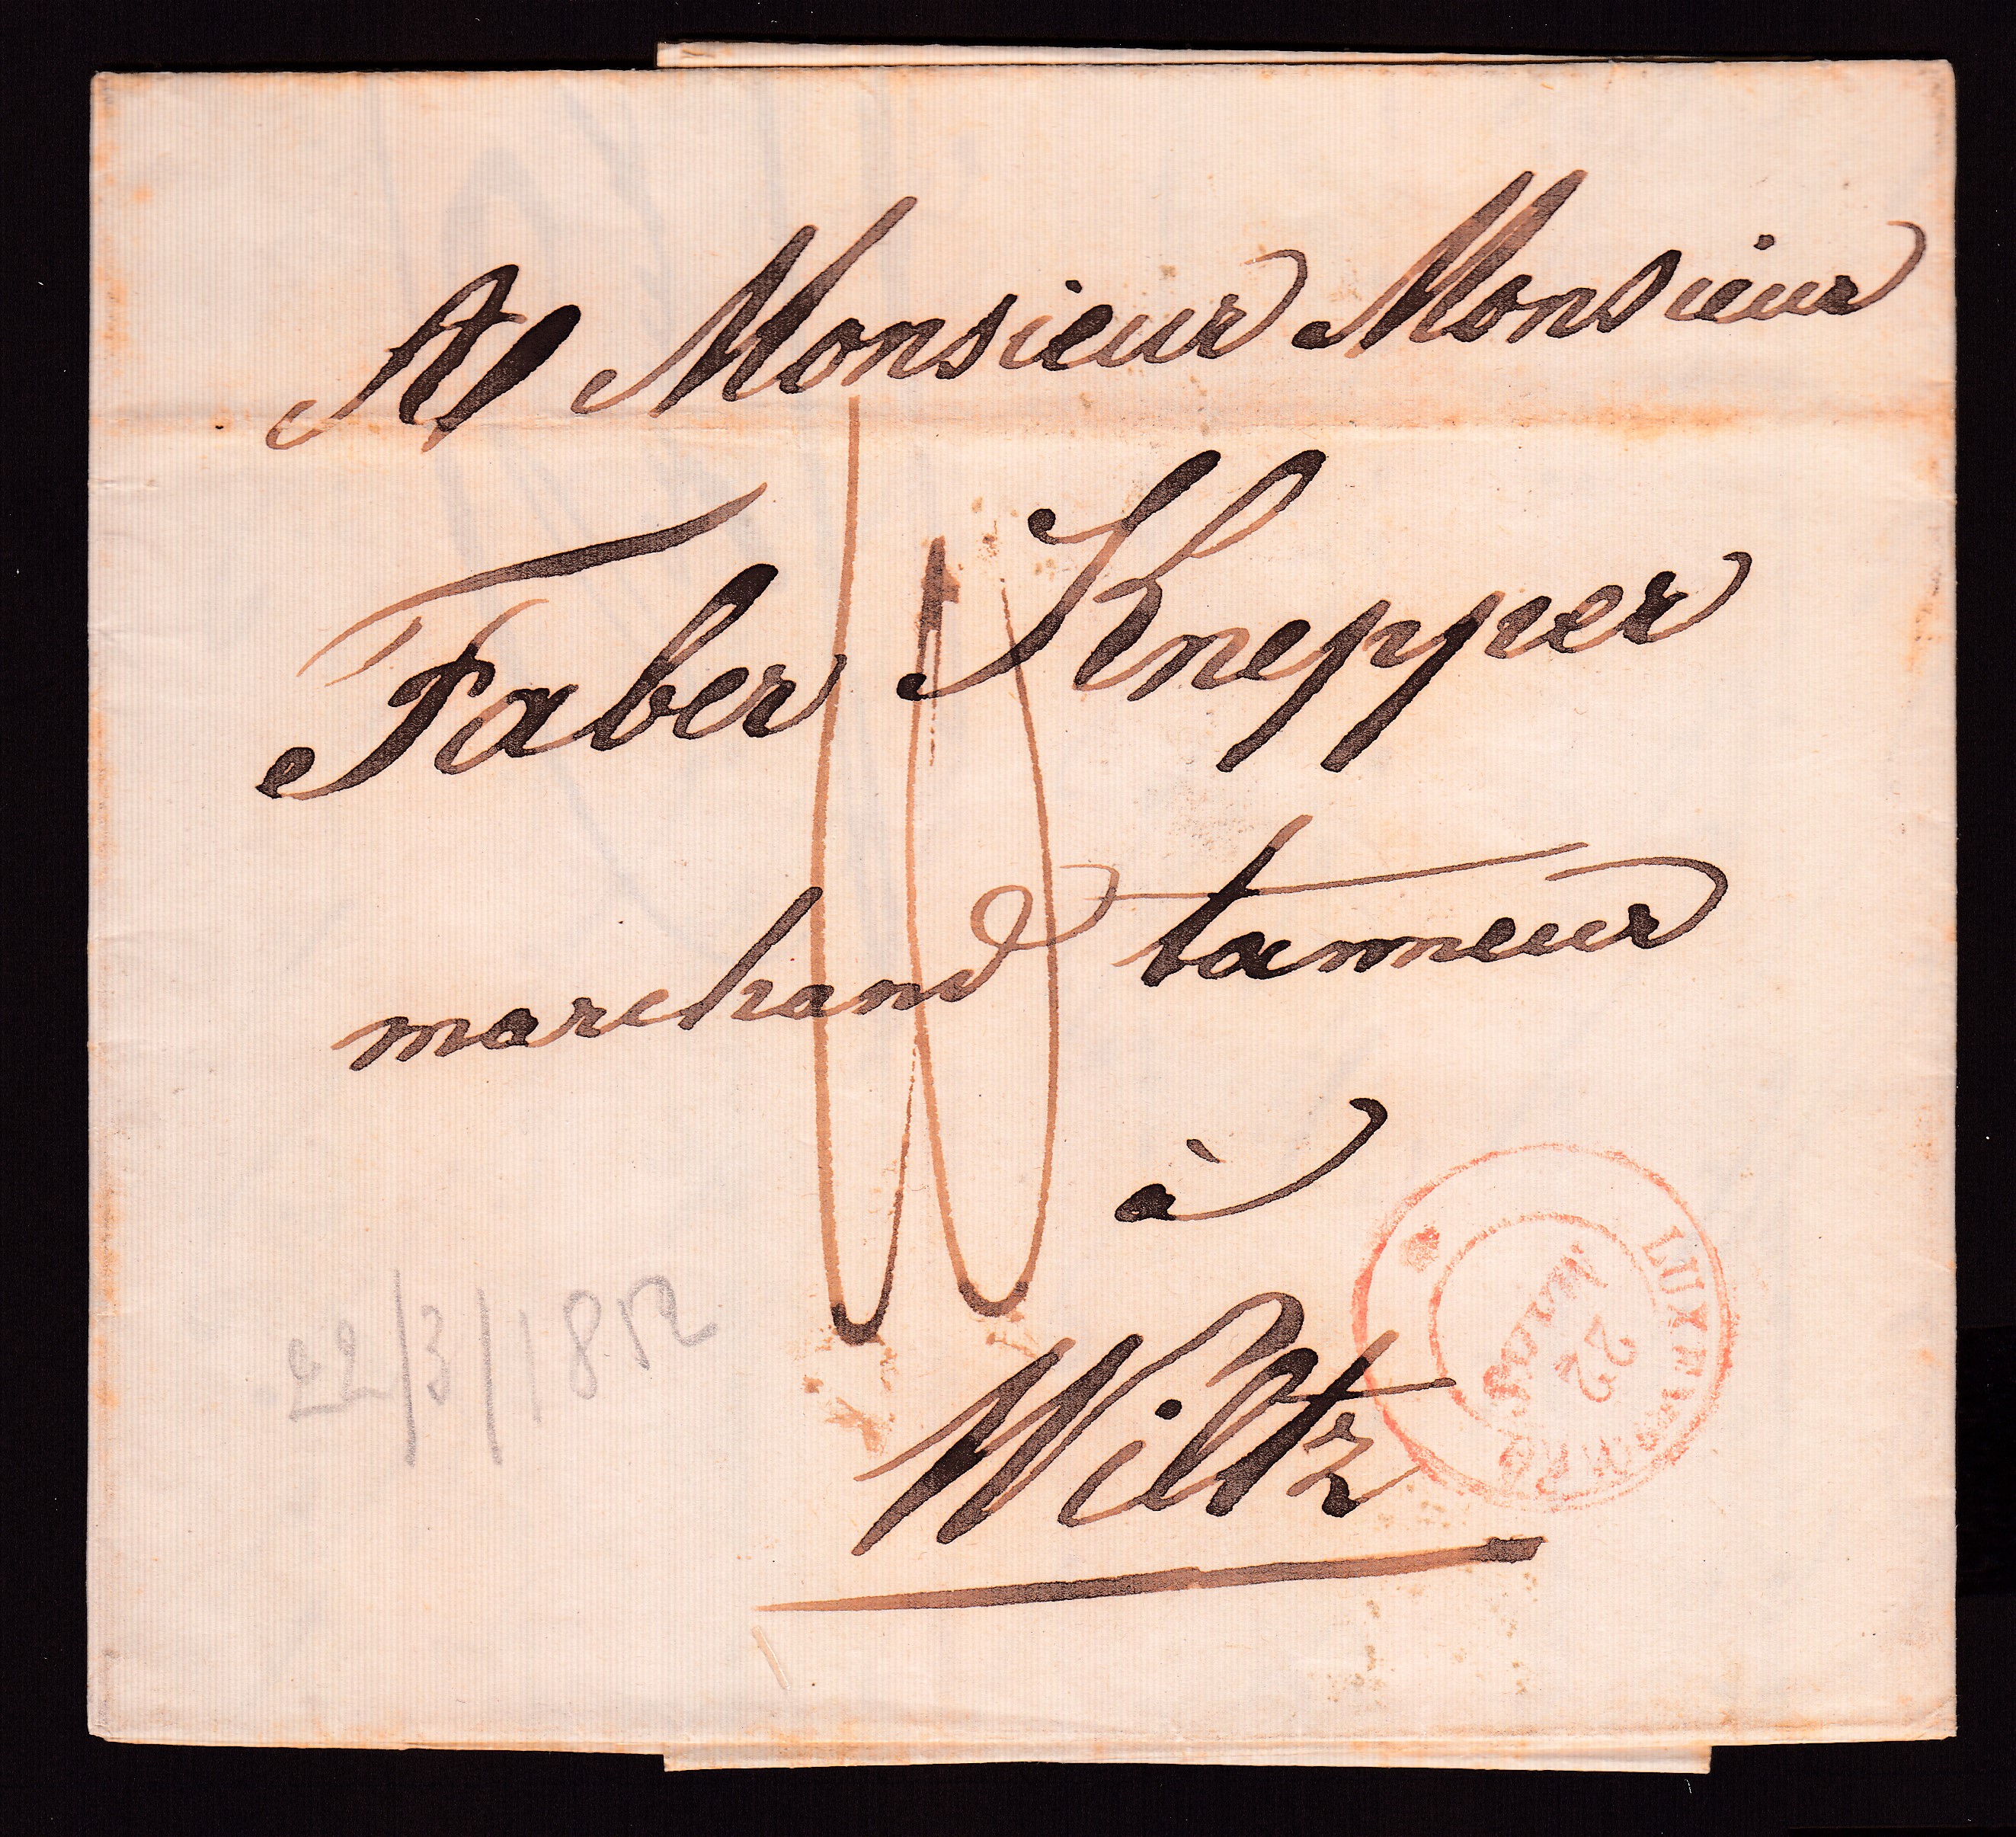 A Monsieur Monsieur
Faber Knepper
marchand tanneur
à
Wiltz
22/3/1852
LUXEMBOURG
22
MARS